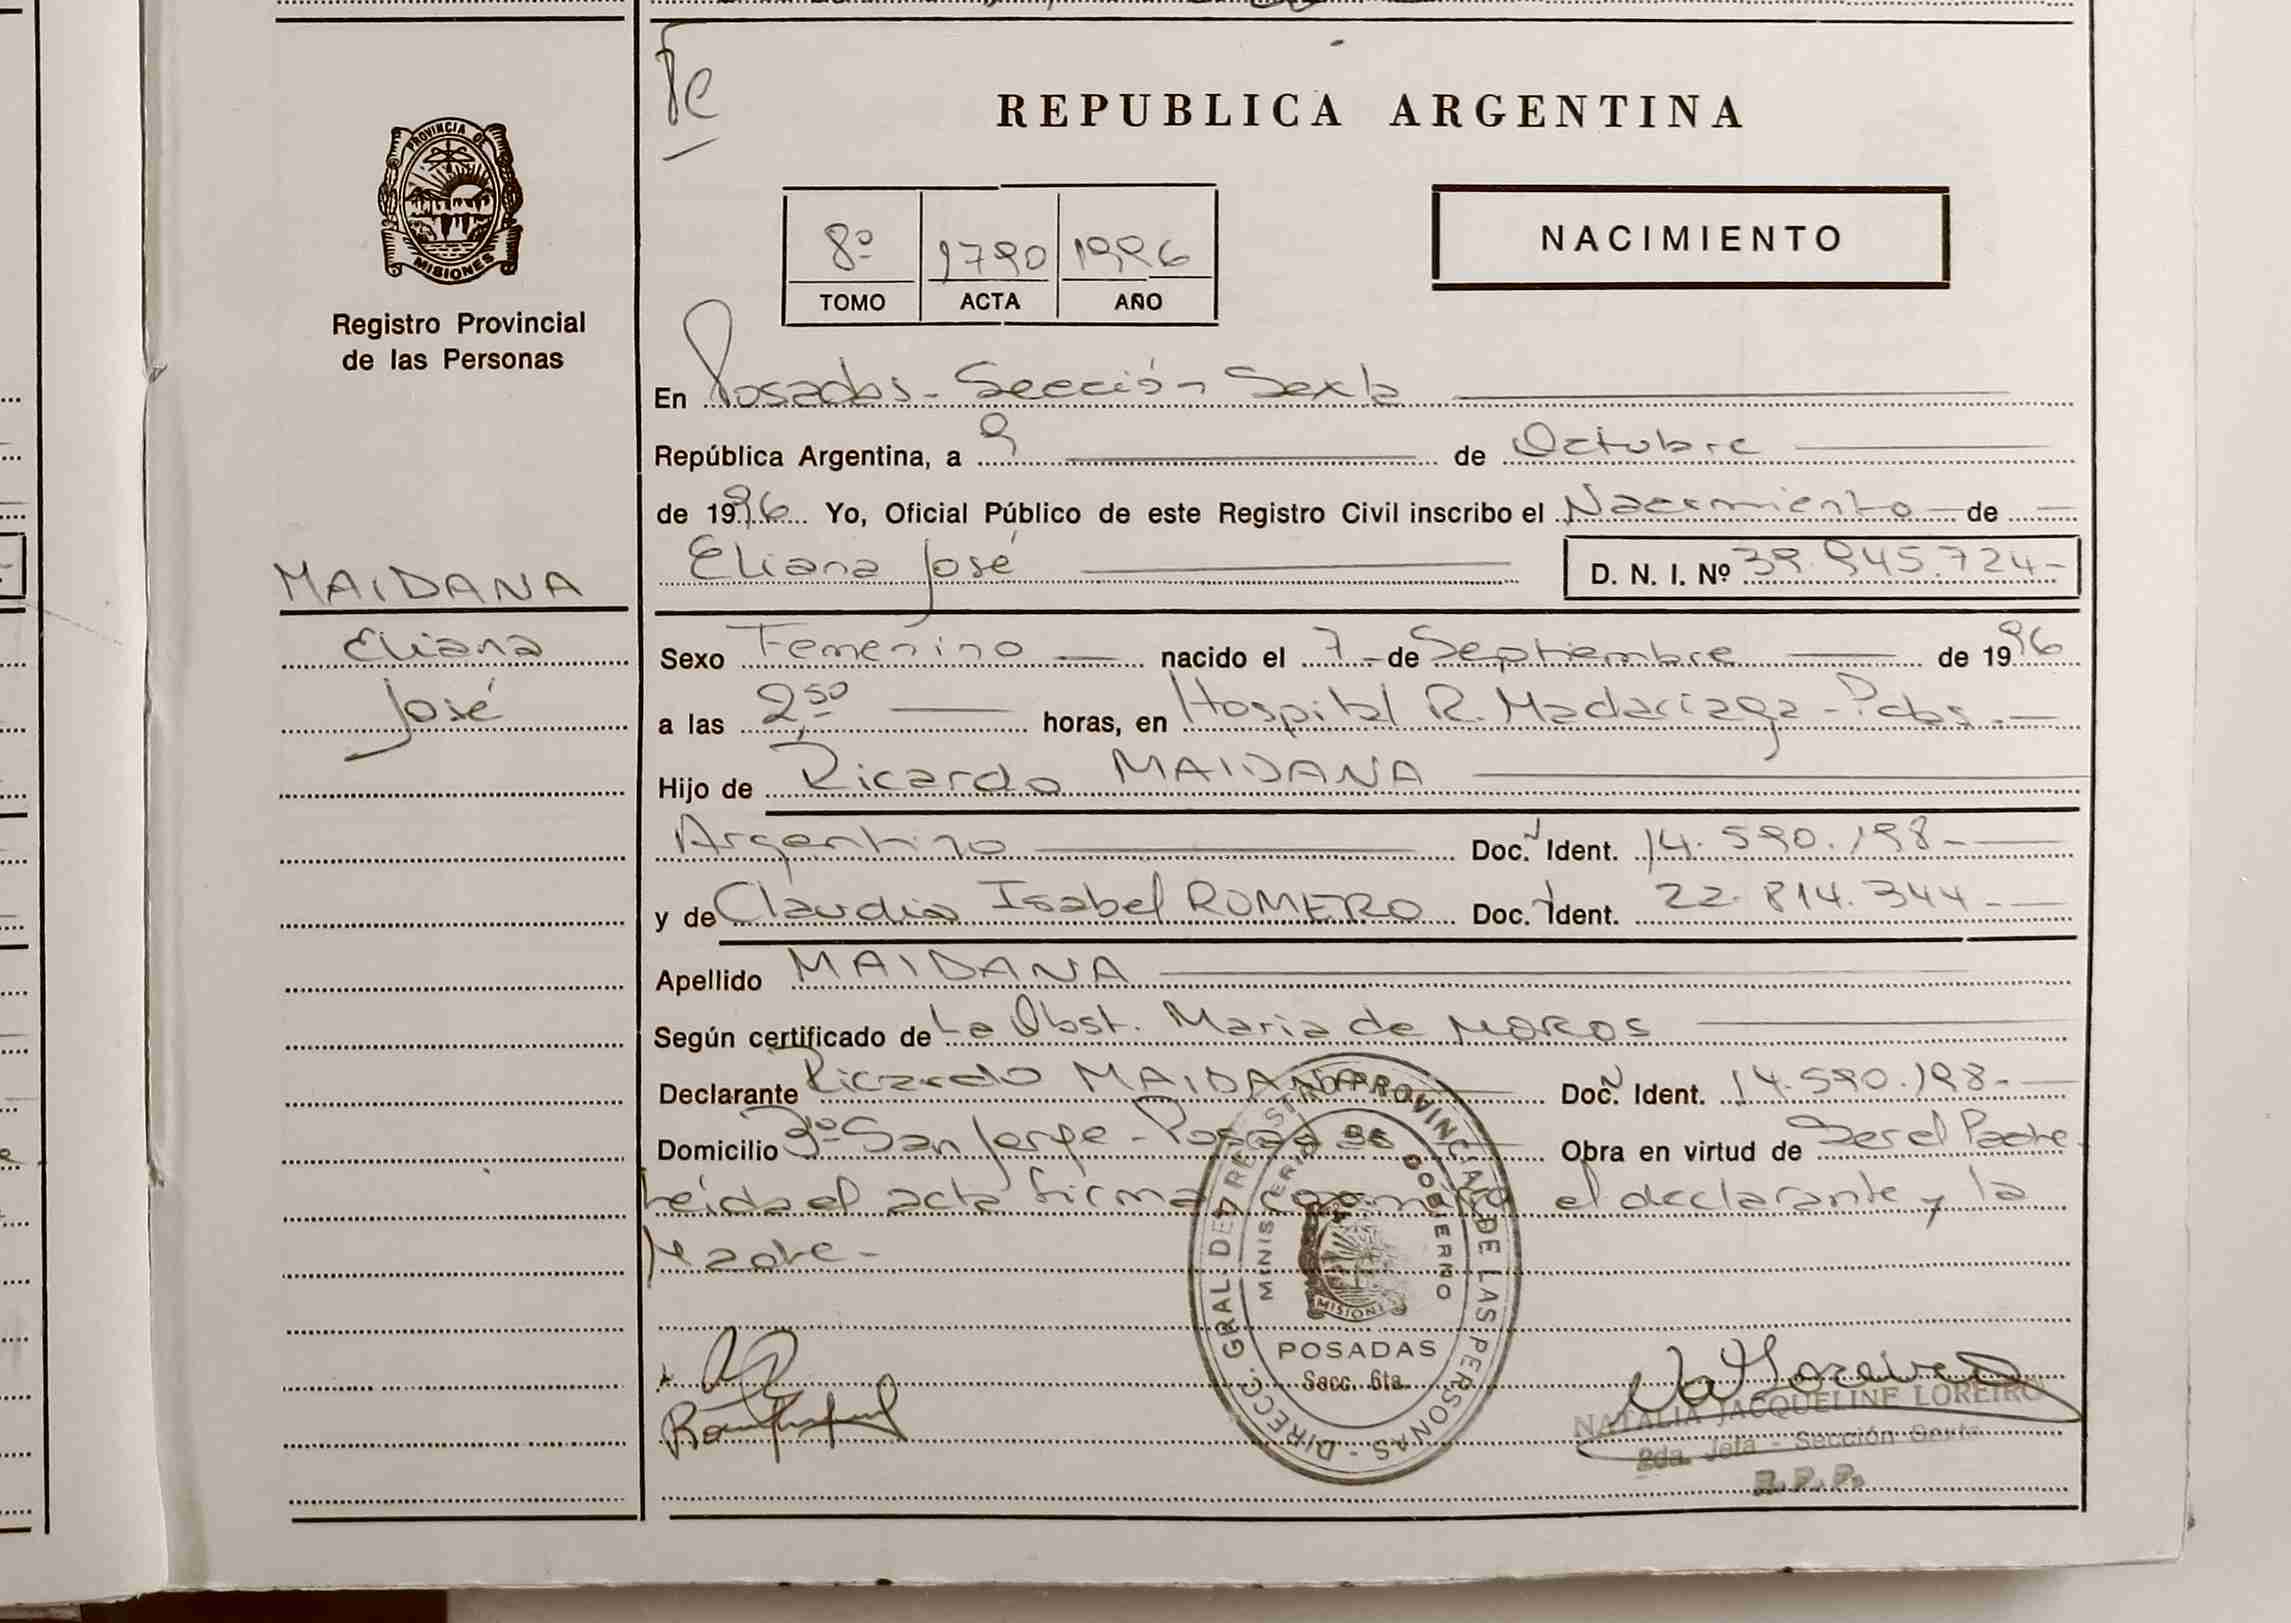 PROVINCIA DE
MISIONES
Registro Provincial
de las Personas
MAIDANA
Eliana
José
REPUBLICA ARGENTINA
8º 1790 1996
TOMO ACTA AÑO
NACIMIENTO
En Posadas - Sección Sexta
República Argentina, a 9 de Octubre
de 1996 Yo, Oficial Público de este Registro Civil inscribo el Nacimiento de
Eliana José D. N. I. Nº 39.945.724-
Sexo Femenino nacido el 7 de Septiembre de 1996
a las 2,50 horas, en Hospital R. Madariaga - Pdas.
Hijo de Ricardo MAIDANA
Argentino Doc. Ident. 14.590.198-
y de Claudia Isabel ROMERO Doc. Ident. 22.814.344-
Apellido MAIDANA
Según certificado de La Obst. Maria de MOROS
Declarante Ricardo MAIDANA Doc. Ident. 14.590.198-
Domicilio 3º San Jorge - Posadas Obra en virtud de Ser el Padre
Leida el acta firma conmigo el declarante y la
Madre-
DIRECC. GRAL. DEL REGISTRO PROVINCIAL DE LAS PERSONAS -
MINISTERIO DE GOBIERNO
MISIONES
POSADAS
Secc. 6ta.
NATALIA JACQUELINE LOREIRO
2da. Jefa - Sección Sexta
R.P.P.